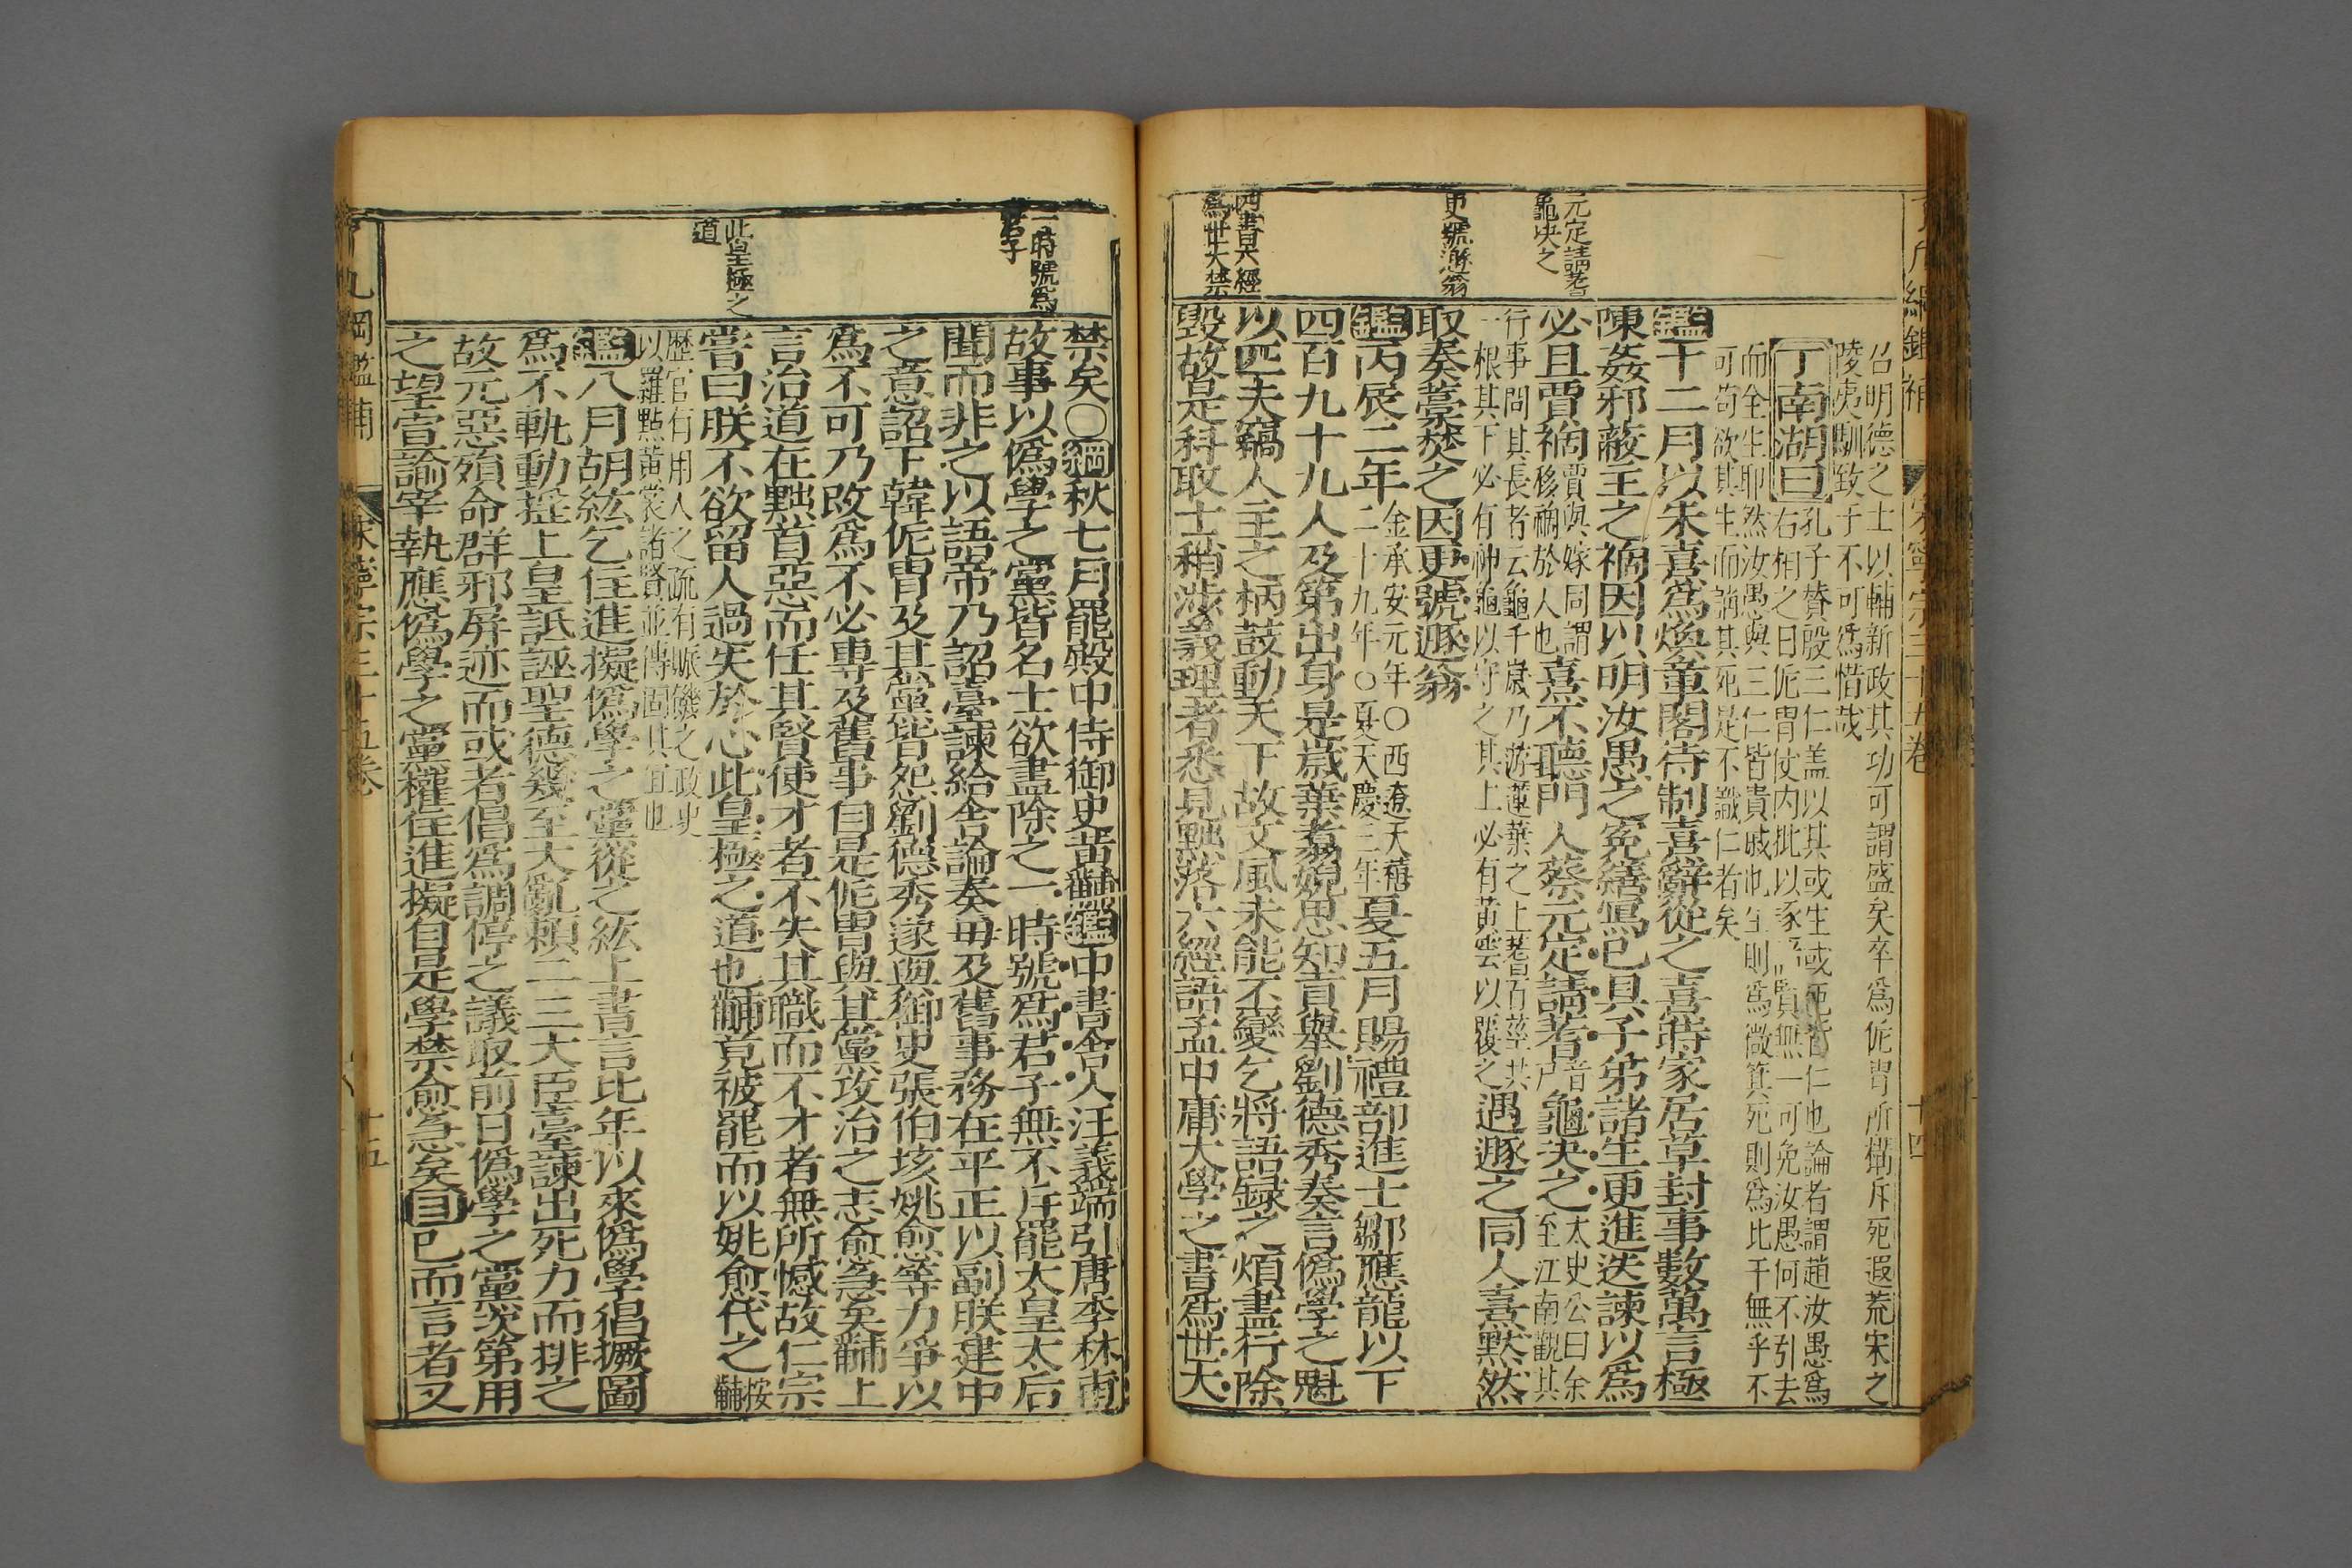 元定請蓍
龜决之
更號遯翁
四書六經
爲世大禁
召明德之士以輔新政其功可謂盛矣卒爲侂胄所擠斥死遐荒宋之
陵夷馴致于不可爲惜哉
丁南湖曰孔子賛殷三仁盖以其或生或死皆仁也論者謂趙汝愚爲
右相之日侂胄仗内批以逐 賢無一可免汝愚何不引去
而全生耶然汝愚與三仁皆貴戚也生則爲微箕死則爲比干無乎不
可苟欲其生而誚其死是不識仁者矣
鑑十二月以朱熹爲煥章閣待制熹辭從之熹時家居草封事數萬言極
陳姦邪蔽主之禍因以明汝愚之冤繕寫已具子弟諸生更進迭諫以爲
必且賈禍賈與嫁同謂移禍於人也熹不聽門人蔡元定請蓍音尸龜决之太史公曰余至江南觀其
行事問其長者云龜千歲乃遊蓮葉之上蓍百莖共一根其下必有神龜以守之其上必有黃雲以覆之遇遯之同人熹默然
取奏藁焚之因更號遯翁
鑑丙辰二年金承安元年○西遼天禧二十九年○夏天慶三年夏五月賜禮部進士鄒應龍以下
四百九十九人及第出身是歲葉翥倪思知貢舉劉德秀奏言僞學之魁
以匹夫竊人主之柄鼓動天下故文風未能丕變乞將語録之類盡行除
毀故是科取士稍涉義理者悉見黜落六經語孟中庸大學之書爲世大
宋寧宗三十五卷
十四
一時號爲
君子
此皇極之
道
禁矣○綱秋七月罷殿中侍御史黃黼鑑中書舍人汪義端引唐李林甫
故事以僞學之黨皆名士欲盡除之一時號爲君子無不斥罷太皇太后
聞而非之以語帝乃詔臺諫給舍論奏毋及舊事務在平正以副朕建中
之意詔下韓侂胄及其黨皆怨劉德秀遂與御史張伯垓姚愈等力爭以
爲不可乃改爲不必專及舊事自是侂胄與其黨攻治之志愈急矣黼上
言治道在黜首惡而任其賢使才者不失其職而不才者無所憾故仁宗
嘗曰朕不欲留人過失於心此皇極之道也黼竟被罷而以姚愈代之按黼
歷官有用人之疏有賑饑之政史以羅點黃裳諸賢並傳固其宜也
鑑八月胡紘乞住進擬僞學之黨從之紘上書言比年以來僞學倡獗圖
爲不軌動摇上皇詆誣聖德幾至大亂賴二三大臣臺諫出死力而排之
故元惡殞命群邪屏迹而或者倡爲調停之議取前日僞學之黨次第用
之望宣諭宰執應僞學之黨權住進擬自是學禁愈急矣目已而言者又
九綱鑑補
宋寧宗三十五卷
十五